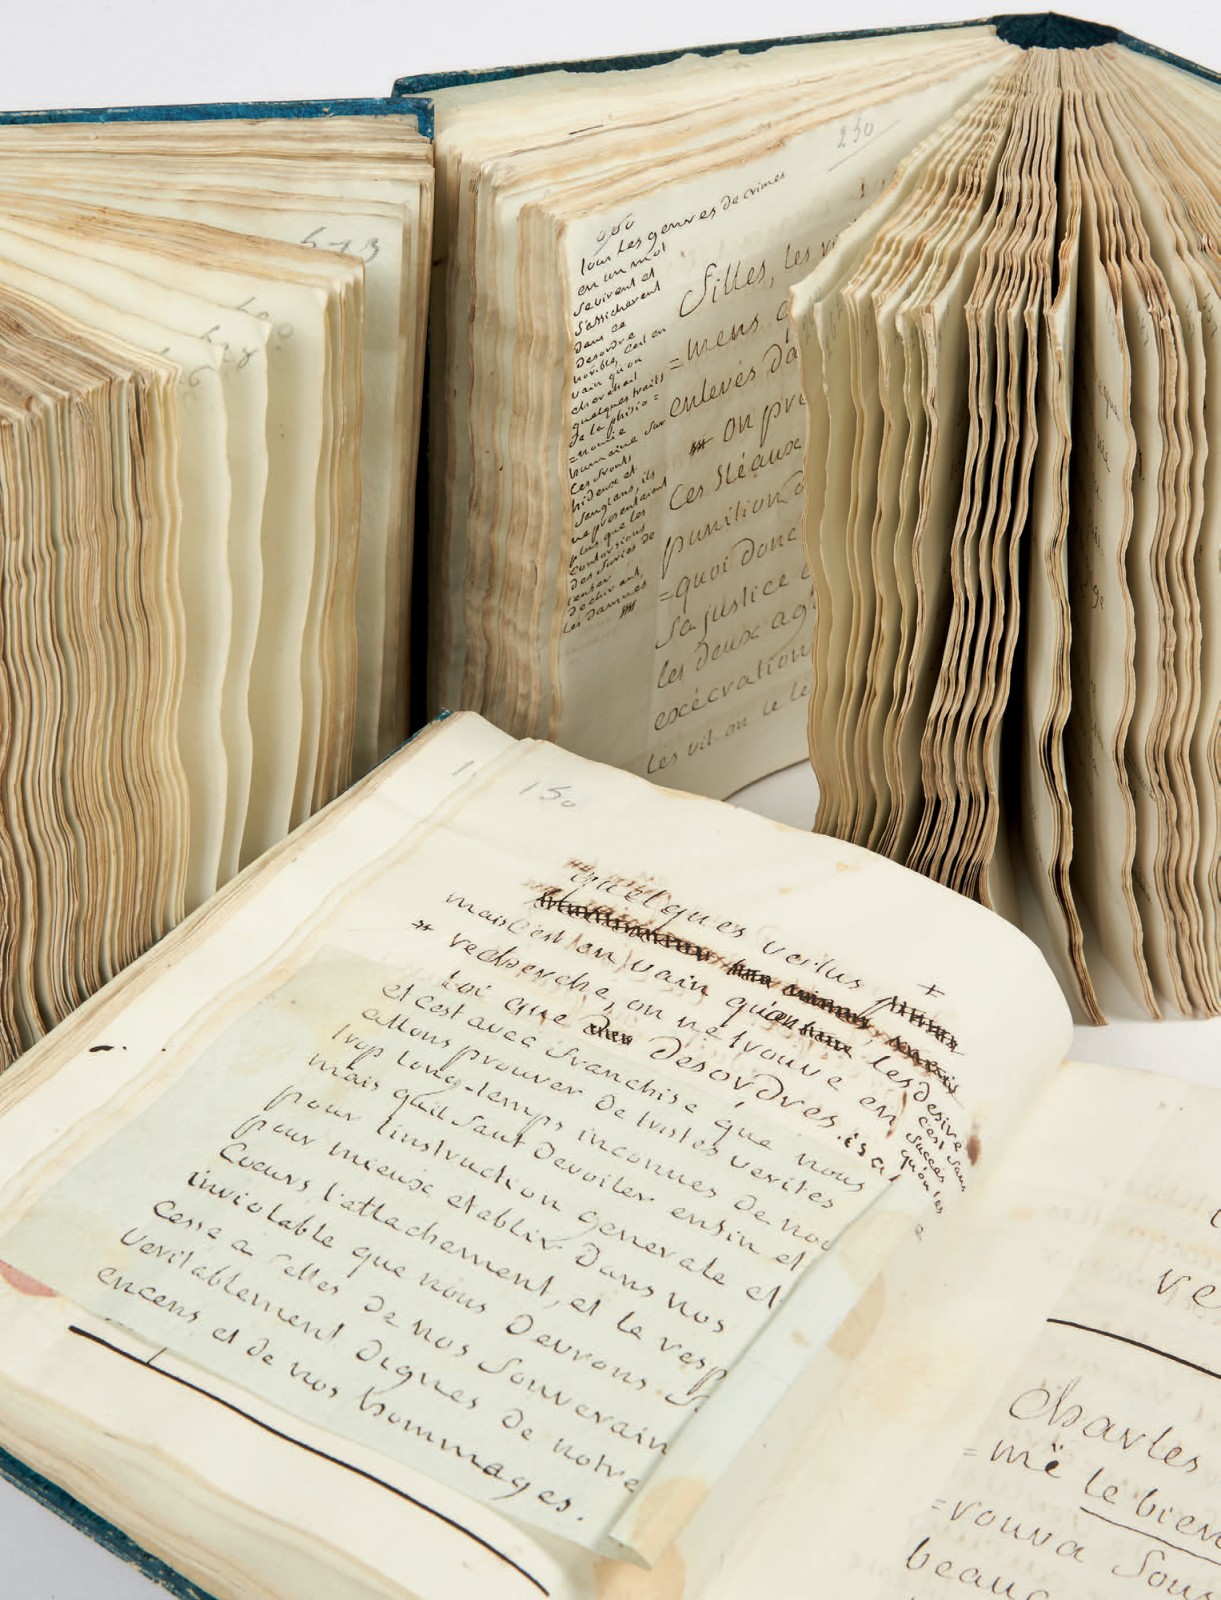 573
250
tous les genres de crimes
en un mot
se virent et
s'afficherent
dans ce
desordre
horible, c'est en
vain qu'on
cherchait
quelques traits
de la phisio=
=nomie
humaine sur
ces fronts
hideux et
sanglans, ils
ne presentaient
plus que les
contorsions
des furies de
l'enfer
dechirant
les damnés
filles, les
=mens
enlevés da
on pri
ces fléaux
punition d
=quoi donc
sa justice
les deux ag
exécration
les vit on le
150
quelques vertus
mais c'est en vain qu'on les desire
recherche, on ne trouve en
loi que desordres.
c'est sans
succes
qu'on les
et c'est avec franchise que nous
allons prouver de tristes verites
trop long-temps inconnues de nou
mais quil faut devoiler enfin et
pour l'instruction generale et
pour mieux etablir dans nos
Coeurs l'attachement, et le resp
inviolable que nous devrons s
cesse a celles de nos souverain
veritablement dignes de notre
encens et de nos hommages.
ve
Charles
=më le bien
=rouva sous
beauc